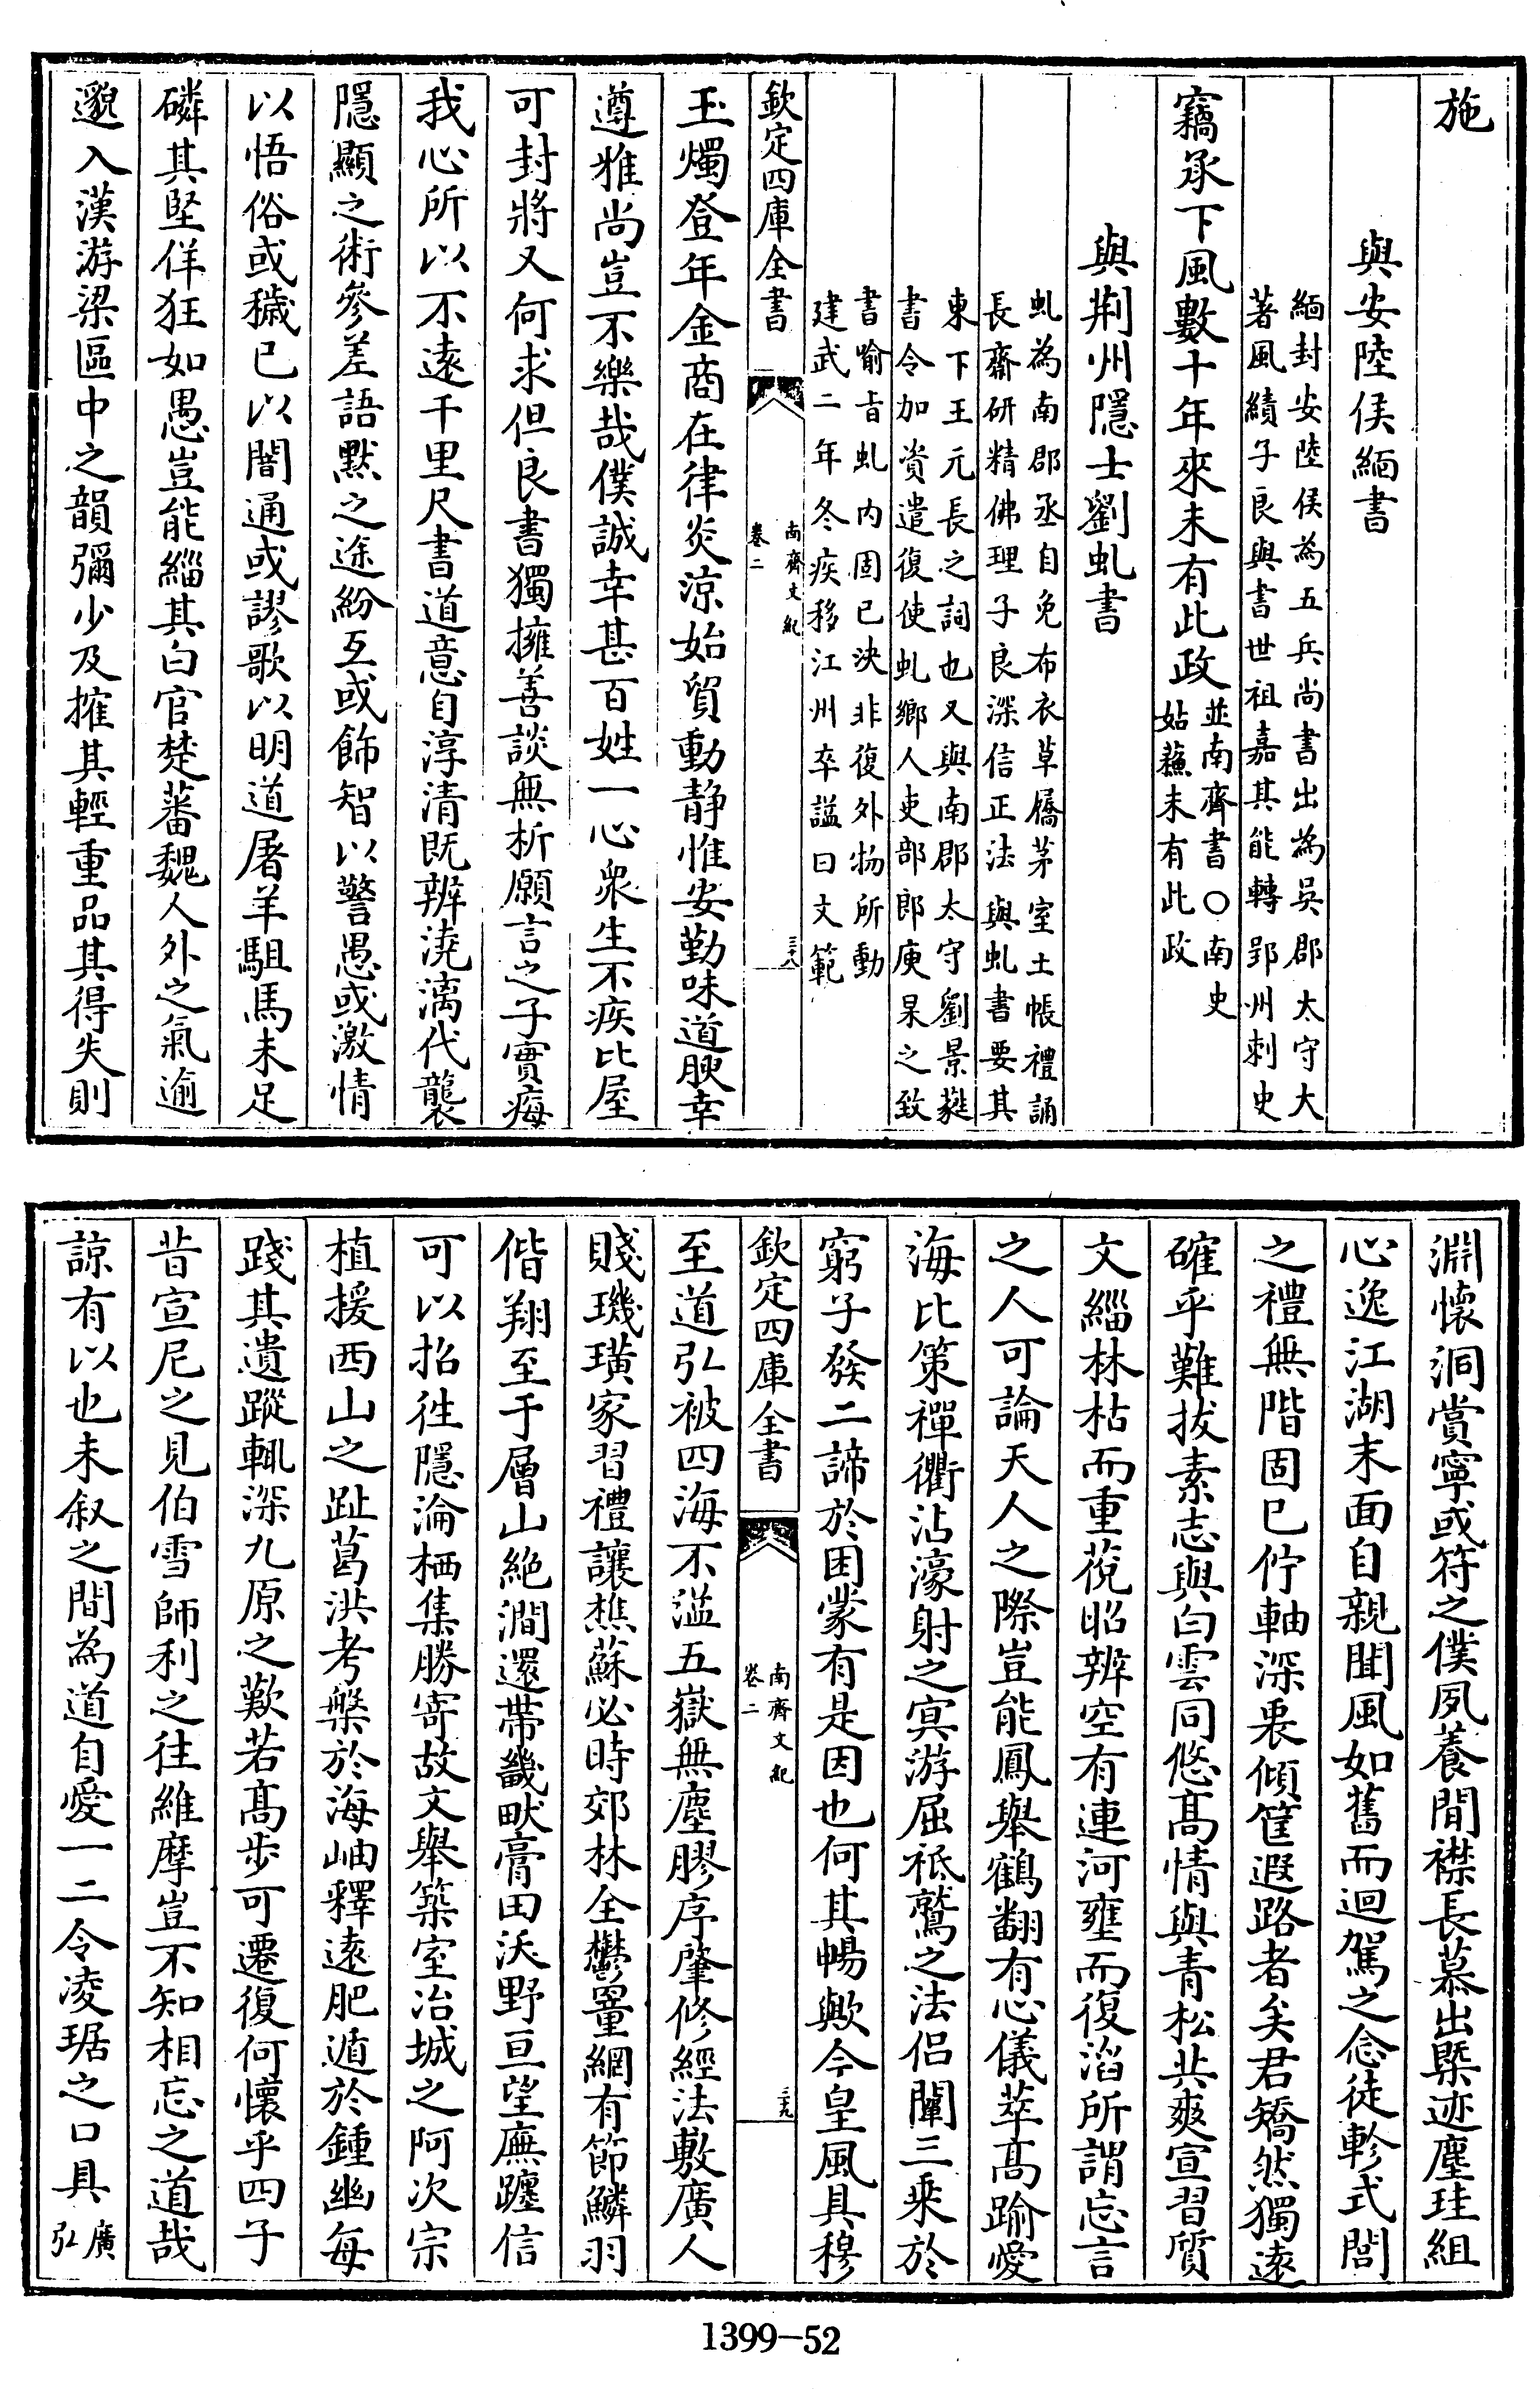 施
與安陸侯緬書
緬封安陸侯為五兵尚書出為吳郡太守大
著風績子良與書世祖嘉其能轉郢州刺史
竊承下風數十年來未有此政並南齊書○南史
姑蘇未有此政
與荆州隱士劉虬書
虬為南郡丞自免布衣草屩茅室土帳禮誦
長齋研精佛理子良深信正法與虬書要其
東下王元長之詞也又與南郡太守劉景蕤
書令加資遣復使虬鄉人吏部郎庾杲之致
書喻旨虬内固已決非復外物所動
建武二年冬疾移江州卒謚曰文範
欽定四庫全書
南齊文紀
卷二
三十八
玉燭登年金商在律炎涼始貿動静惟安勤味道腴幸
遵雅尚豈不樂哉僕誠幸甚百姓一心衆生不疾比屋
可封將又何求但良書獨擁善談無析願言之子實痗
我心所以不遠千里尺書道意自淳清既辨澆漓代襲
隱顯之術參差語默之途紛互或飾智以警愚或激情
以悟俗或穢已以闇通或謬歌以明道屠羊駔馬未足
磷其堅佯狂如愚豈能緇其白官楚蕃魏人外之氣逾
邈入漢游梁區中之韻彌少及摧其輕重品其得失則
淵懷洞賞寧或符之僕夙養閒襟長慕出槩迹塵珪組
心逸江湖末面自親聞風如舊而迴駕之念徒軫式閭
之禮無階固已佇軸深衷傾筐遐路者矣君矯然獨遠
確乎難拔素志與白雲同悠髙情與青松共爽宣習質
文緇林枯而重蒞昭辨空有連河壅而復滔所謂忘言
之人可論天人之際豈能鳳舉鶴翻有心儀萃髙踰愛
海比策禪衢沾濠射之㝠游屈祇鷲之法侣闡三乘於
窮子發二諦於困蒙有是因也何其暢歟今皇風具穆
欽定四庫全書
南齊文紀
卷二
三十九
至道弘被四海不溢五嶽無塵膠序肇修經法敷廣人
賤璣璜家習禮讓樵蘇必時郊林全鬱罿網有節鱗羽
偕翔至于層山絶澗還帶畿畎膏田沃野亘望廡躔信
可以招徃隱淪栖集勝寄故文舉築室冶城之阿次宗
植援西山之趾葛洪考槃於海岫釋遠肥遁於鍾幽每
踐其遺蹤輒深九原之歎若髙歩可遷復何懷乎四子
昔宣尼之見伯雪師利之往維摩豈不知相忘之道哉
諒有以也未叙之間為道自愛一二令凌琚之口具廣
弘
1399-52